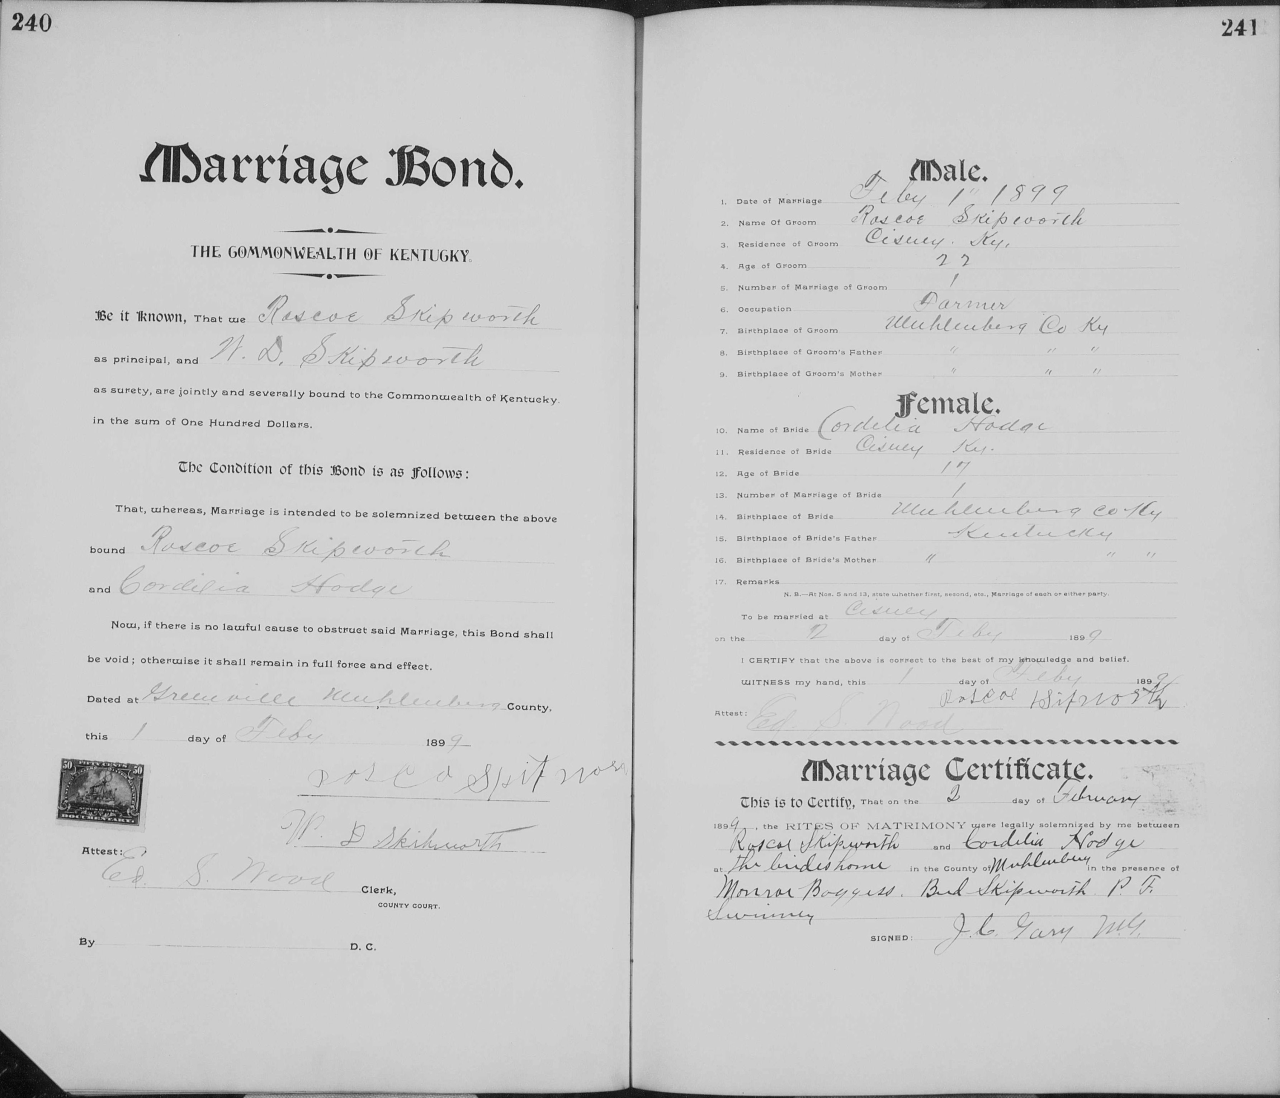 240
Marriage Bond.
THE COMMONWEALTH OF KENTUCKY.
Be it Known, That we Roscoe Skipworth
as principal, and W. D. Skipworth
as surety, are jointly and severally bound to the Commonwealth of Kentucky.
in the sum of One Hundred Dollars.
The Condition of this Bond is as Follows:
That, whereas, Marriage is intended to be solemnized between the above
bound Roscoe Skipworth
and Cordilia Hodge
Now, if there is no lawful cause to obstruct said Marriage, this Bond shall
be void; otherwise it shall remain in full force and effect.
Dated at Greenville Muhlenberg County,
this 1 day of Feby 1899
50 50
DOCUMENTARY
W. D Skipworth
Attest: Ed. S. Wood Clerk,
COUNTY COURT.
By D. C.
241
Male.
1. Date of Marriage Feby 1" 1899
2. Name Of Groom Roscoe Skipworth
3. Residence of Groom Cisney. Ky.
4. Age of Groom 22
5. Number of Marriage of Groom 1
6. Occupation Farmer
7. Birthplace of Groom Muhlenberg Co Ky
8. Birthplace of Groom's Father " " "
9. Birthplace of Groom's Mother " " "
Female.
10. Name of Bride Cordelia Hodge
11. Residence of Bride Cisney Ky.
12. Age of Bride 17
13. Number of Marriage of Bride 1
14. Birthplace of Bride Muhlenberg Co Ky
15. Birthplace of Bride's Father Kentucky
16. Birthplace of Bride's Mother " " "
17. Remarks
N. B.—At Nos. 5 and 13, state whether first, second, etc., Marriage of each or either party.
To be married at Cisney
on the 2 day of Feby 1899
I CERTIFY that the above is correct to the best of my knowledge and belief.
WITNESS my hand, this 1 day of Feby 1899
Attest: Ed S. Wood
Marriage Certificate.
This is to Certify, That on the 2 day of February
1899, the RITES OF MATRIMONY were legally solemnized by me between
Roscoe Skipworth and Cordelia Hodge
at the brides home in the County of Muhlenberg in the presence of
Monroe Boggess. Bud Skipworth P. F.
Swinney
SIGNED: J. C. Gary M.G.